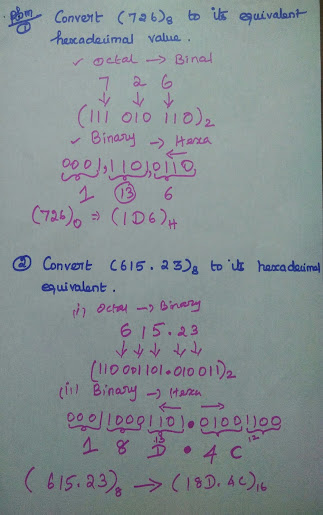 Pbm
① Convert (726)₈ to its equivalent
hexadecimal value.
✓ Octal → Binal
7 2 6
↓ ↓ ↓
(111 010 110)₂
✓ Binary → Hexa
←
0001,1101,0110
1 ⑬ 6
(726)₀ ⇒ (1D6)H
② Convert (615.23)₈ to its hexadecimal
equivalent.
(i) Octal → Binary
6 15.23
↓↓ ↓ ↓ ↓
(110001101.010011)₂
(ii) Binary → Hexa
← →
000110001101.01001100
13 12
1 8 D . 4 C
(615.23)₈ → (18D.4C)₁₆